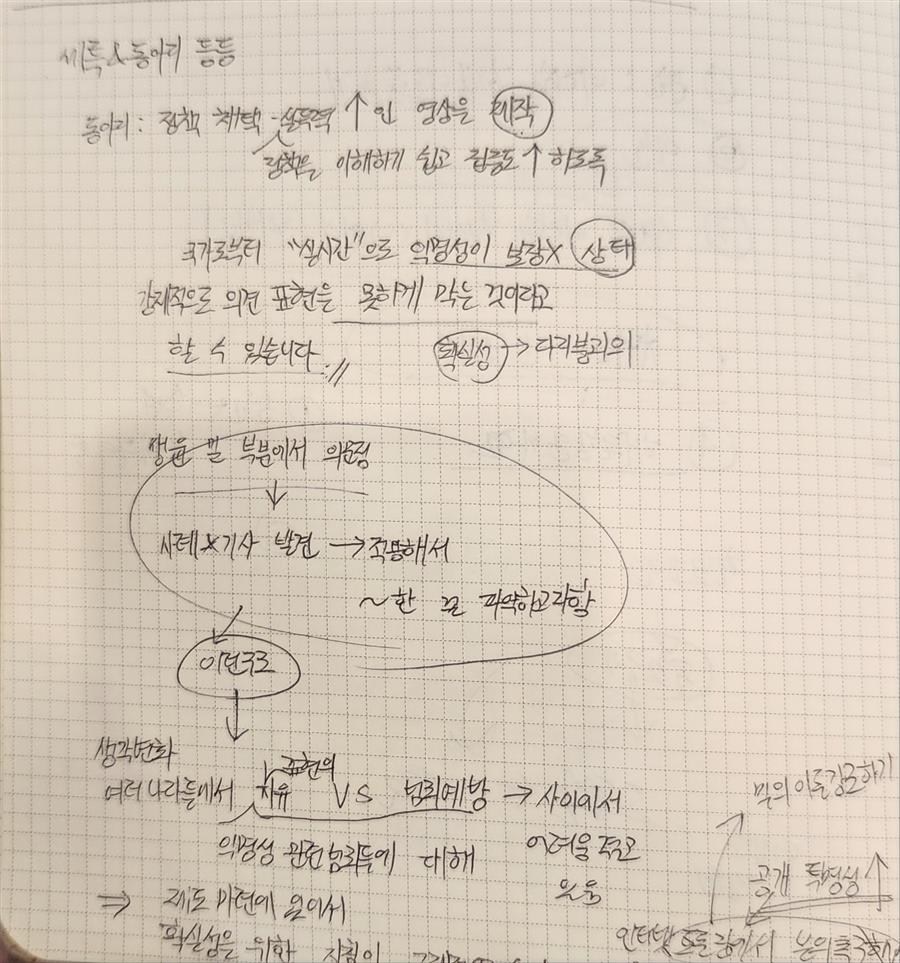 세특&동아리 등등
동아리: 정책 채택 설득력 ↑인 영상을 제작
정책을 이해하기 쉽고 집중도↑ 하도록
국가로부터 "실시간"으로 익명성이 보장X 상태
강제적으로 의견 표현을 못하게 막는 것이라고
할 수 있습니다.
확실성 → 다리불괴의
부분에서 의문점
↓
사례&기사 발견 → 적용해서
~한 파악하고자함
이런구조
↓
생각변화
표현의
여러나라들에서 자유 VS 범죄예방 → 사이에서
익명성 관련범죄들에 대해
어려움 겪고
있음
⇒ 제도 마련에 있어서
확실성을 위한 지침이
강조하기
공개 투명성↑
인터넷 토론장에서